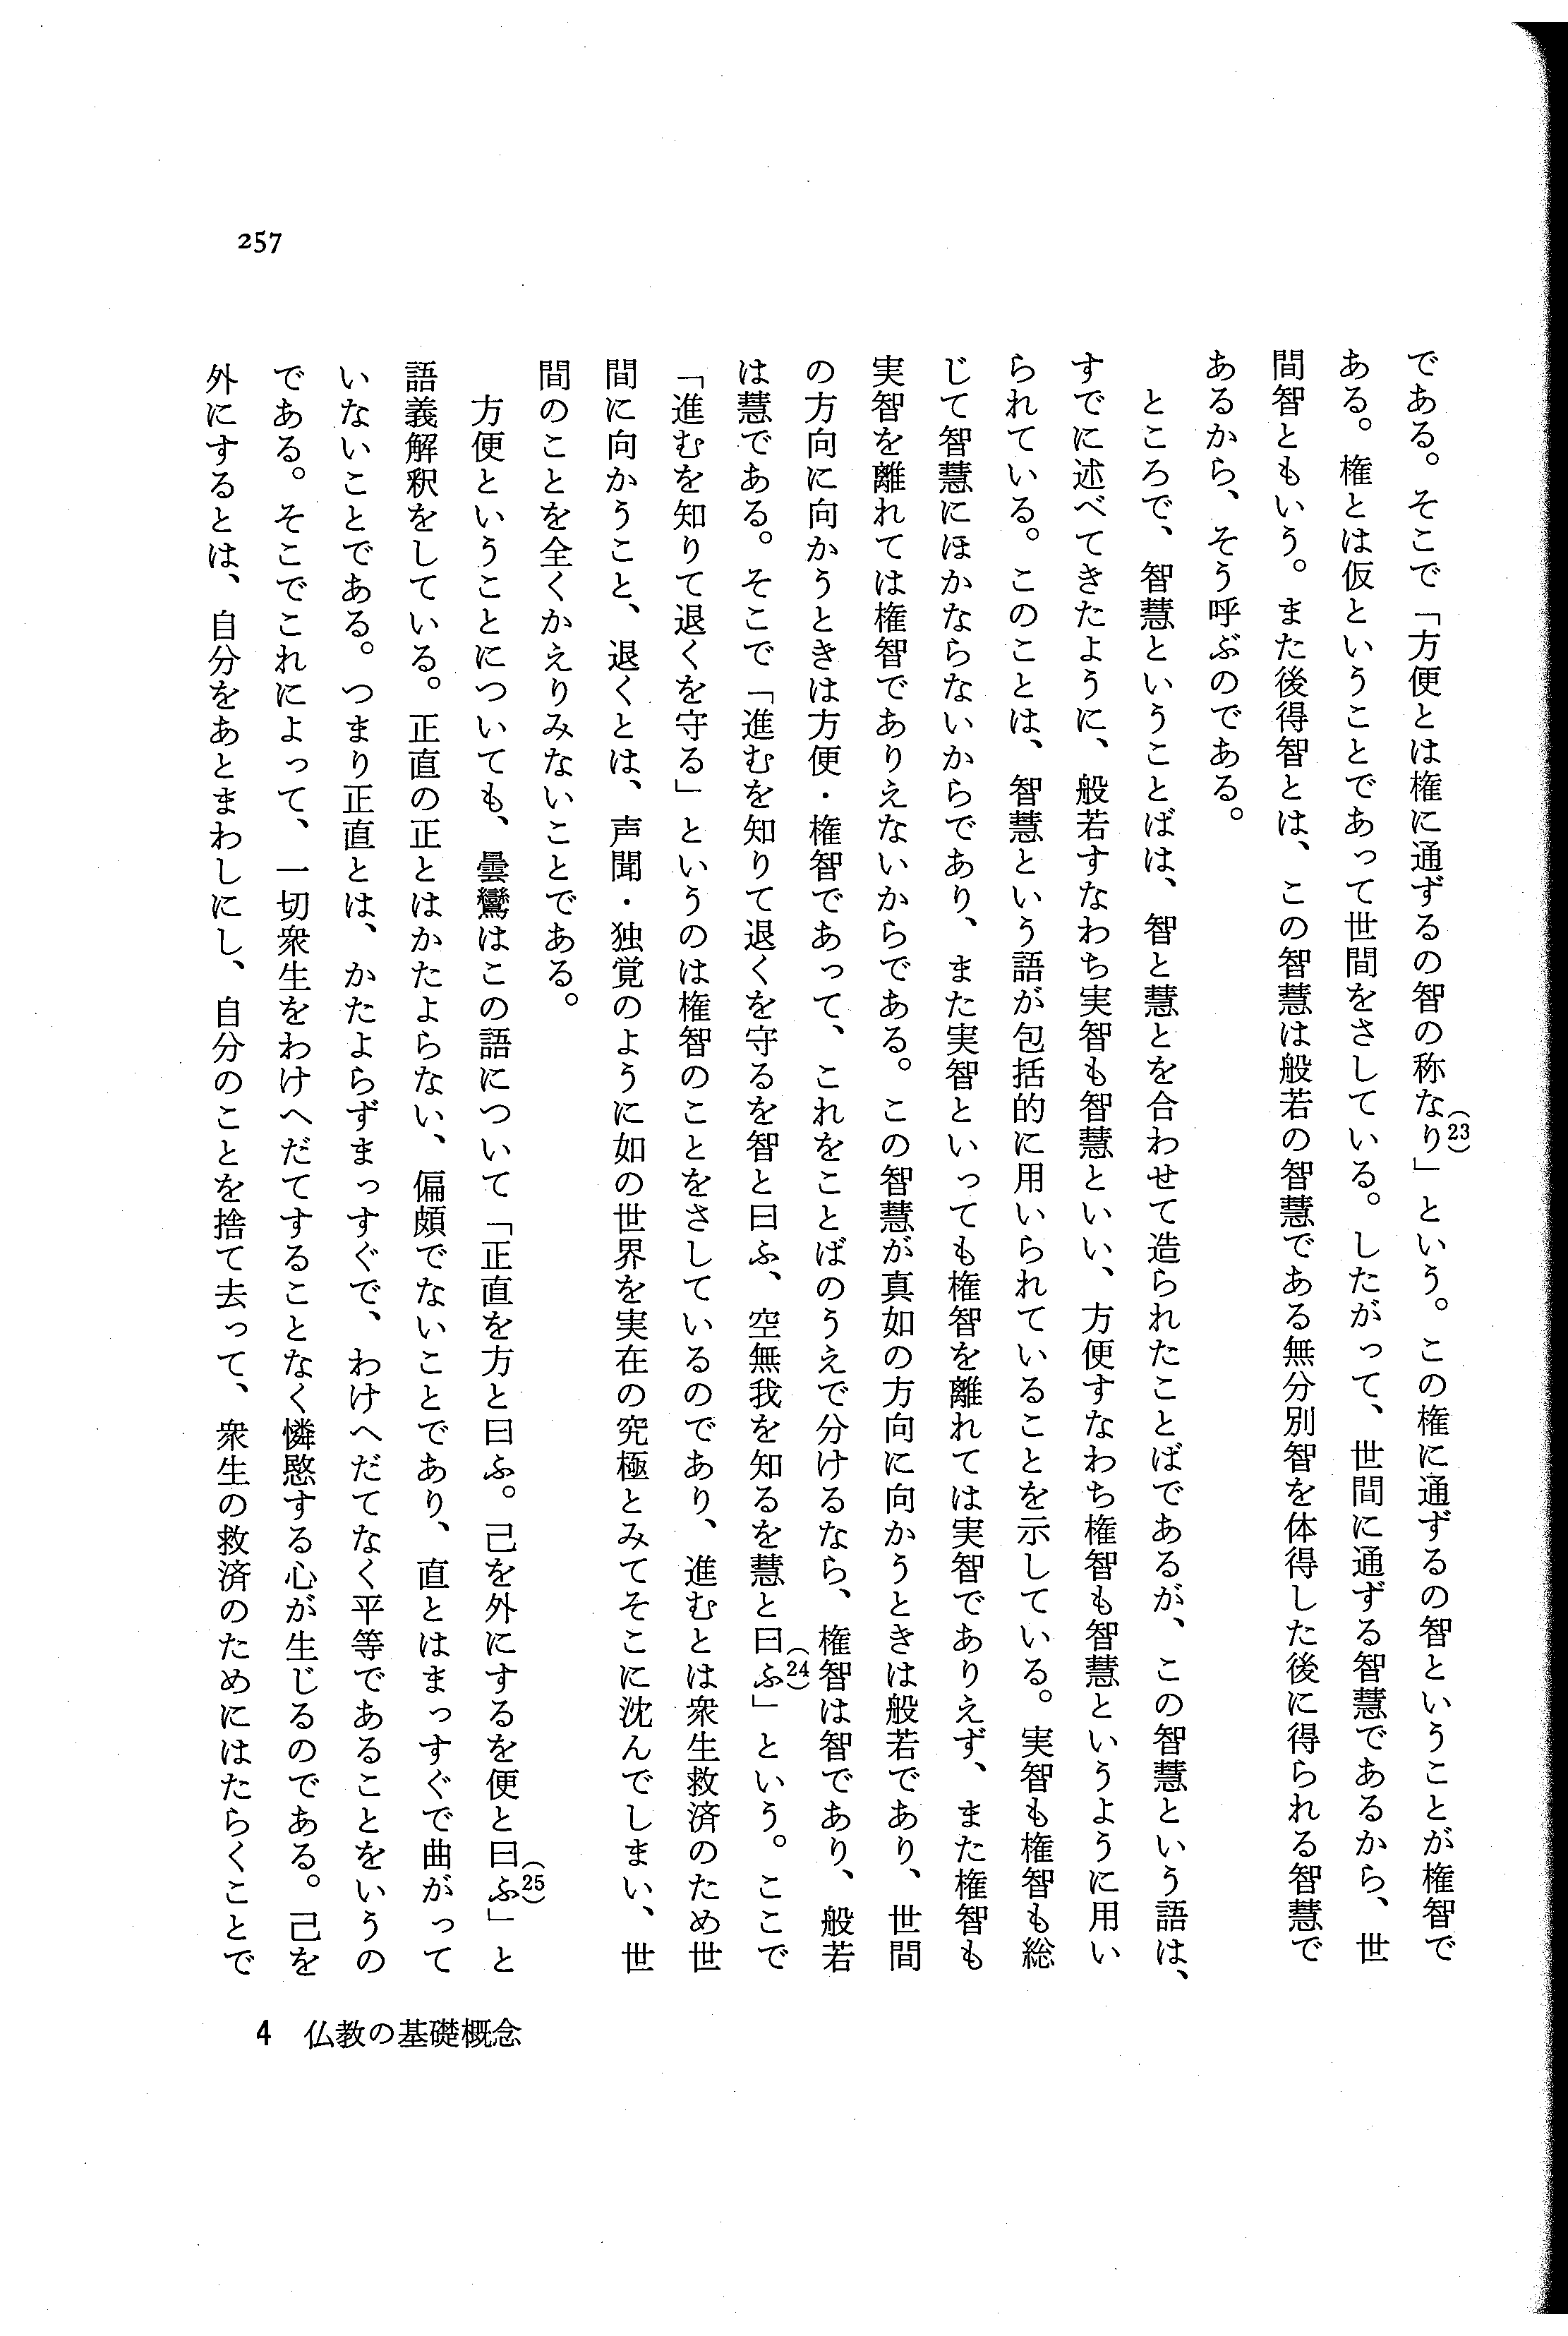 である。そこで「方便とは権に通ずるの智の称なり(23)」という。この権に通ずるの智ということが権智で
ある。権とは仮ということであって世間をさしている。したがって、世間に通ずる智慧であるから、世
間智ともいう。また後得智とは、この智慧は般若の智慧である無分別智を体得した後に得られる智慧で
あるから、そう呼ぶのである。
ところで、智慧ということばは、智と慧とを合わせて造られたことばであるが、この智慧という語は、
すでに述べてきたように、般若すなわち実智も智慧といい、方便すなわち権智も智慧というように用い
られている。このことは、智慧という語が包括的に用いられていることを示している。実智も権智も総
じて智慧にほかならないからであり、また実智といっても権智を離れては実智でありえず、また権智も
実智を離れては権智でありえないからである。この智慧が真如の方向に向かうときは般若であり、世間
の方向に向かうときは方便・権智であって、これをことばのうえで分けるなら、権智は智であり、般若
は慧である。そこで「進むを知りて退くを守るを智と曰ふ、空無我を知るを慧と曰ふ(24)」という。ここで
「進むを知りて退くを守る」というのは権智のことをさしているのであり、進むとは衆生救済のため世
間に向かうこと、退くとは、声聞・独覚のように如の世界を実在の究極とみてそこに沈んでしまい、世
間のことを全くかえりみないことである。
方便ということについても、曇鸞はこの語について「正直を方と曰ふ。己を外にするを便と曰ふ(25)」と
語義解釈をしている。正直の正とはかたよらない、偏頗でないことであり、直とはまっすぐで曲がって
いないことである。つまり正直とは、かたよらずまっすぐで、わけへだてなく平等であることをいうの
である。そこでこれによって、一切衆生をわけへだてすることなく憐愍する心が生じるのである。己を
外にするとは、自分をあとまわしにし、自分のことを捨て去って、衆生の救済のためにはたらくことで
4 仏教の基礎概念
257